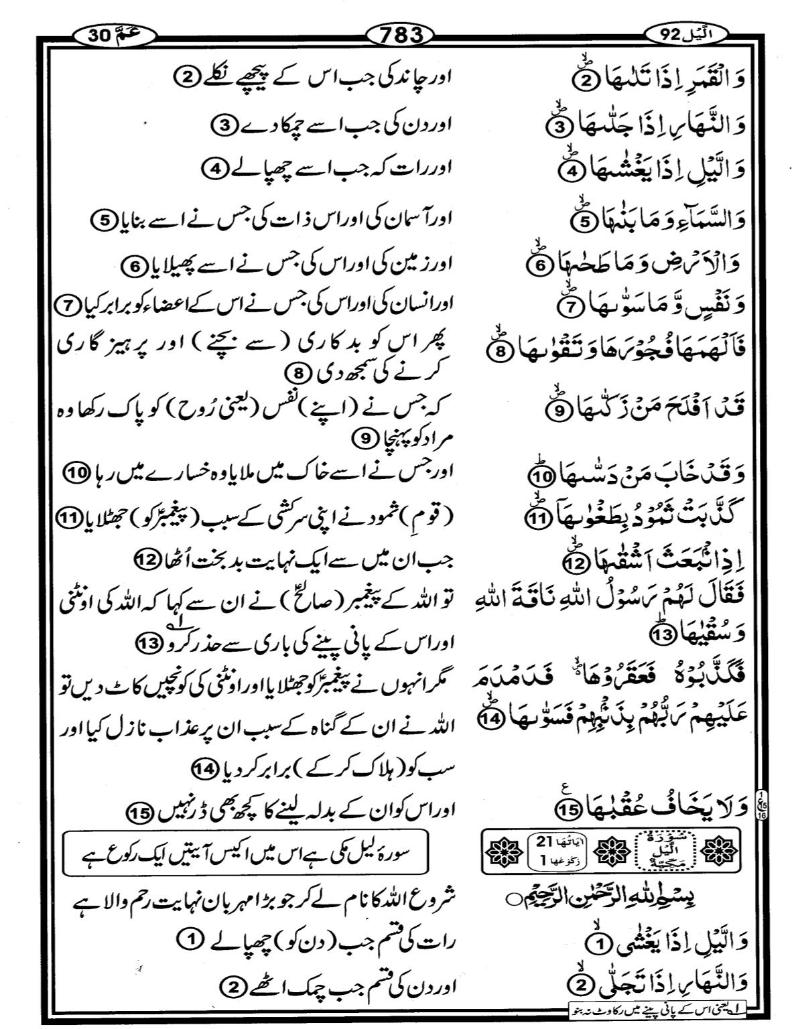 الّيل 92
783
عَمَّ 30
وَالْقَمَرِ اِذَا تَلٰىهَا ② اور چاند کی جب اس کے پیچھے نکلے ②
وَالنَّهَارِ اِذَا جَلّٰىهَا ③ اور دن کی جب اسے چمکا دے ③
وَالَّيْلِ اِذَا يَغْشٰىهَا ④ اور رات کہ جب اسے چھپا لے ④
وَالسَّمَآءِ وَمَا بَنٰىهَا ⑤ اور آسمان کی اور اس ذات کی جس نے اسے بنایا ⑤
وَالْاَرْضِ وَمَا طَحٰىهَا ⑥ اور زمین کی اور اس کی جس نے اسے پھیلایا ⑥
وَنَفْسٍ وَّمَا سَوّٰىهَا ⑦ اور انسان کی اور اس کی جس نے اس کے اعضاء کو برابر کیا ⑦
فَاَلْهَمَهَا فُجُوْرَهَا وَتَقْوٰىهَا ⑧ پھر اس کو بدکاری (سے بچنے) اور پرہیزگاری
کرنے کی سمجھ دی ⑧
قَدْ اَفْلَحَ مَنْ زَكّٰىهَا ⑨ کہ جس نے (اپنے) نفس (یعنی رُوح) کو پاک رکھا وہ
مراد کو پہنچا ⑨
وَقَدْ خَابَ مَنْ دَسّٰىهَا ⑩ اور جس نے اسے خاک میں ملایا وہ خسارے میں رہا ⑩
كَذَّبَتْ ثَمُوْدُ بِطَغْوٰىهَآ ⑪ (قومِ) ثمود نے اپنی سرکشی کے سبب (پیغمبرؑ کو) جھٹلایا ⑪
اِذِانْۢبَعَثَ اَشْقٰىهَا ⑫ جب ان میں سے ایک نہایت بدبخت اُٹھا ⑫
فَقَالَ لَهُمْ رَسُوْلُ اللهِ نَاقَةَ اللهِ تو اللہ کے پیغمبر (صالحؑ) نے ان سے کہا کہ اللہ کی اونٹنی
وَسُقْيٰهَا ⑬ اور اس کے پانی پینے کی باری سے حذر کرو ۱ ⑬
فَكَذَّبُوْهُ فَعَقَرُوْهَا فَدَمْدَمَ مگر انہوں نے پیغمبرؑ کو جھٹلایا اور اونٹنی کی کونچیں کاٹ دیں تو
عَلَيْهِمْ رَبُّهُمْ بِذَنْۢبِهِمْ فَسَوّٰىهَا ⑭ اللہ نے ان کے گناہ کے سبب ان پر عذاب نازل کیا اور
سب کو (ہلاک کر کے) برابر کر دیا ⑭
وَلَا يَخَافُ عُقْبٰهَا ⑮ اور اس کو ان کے بدلہ لینے کا کچھ بھی ڈر نہیں ⑮
1
ع 15
16
سُوْرَةُ الَّيْلِ مَكِّيَّةٌ
اٰيَاتُهَا 21
رُكُوْعُهَا 1
سورۂ لیل مکی ہے اس میں اکیس آیتیں ایک رکوع ہے
بِسْمِ اللهِ الرَّحْمٰنِ الرَّحِيْمِ ○ شروع اللہ کا نام لے کر جو بڑا مہربان نہایت رحم والا ہے
وَالَّيْلِ اِذَا يَغْشٰى ① رات کی قسم جب (دن کو) چھپا لے ①
وَالنَّهَارِ اِذَا تَجَلّٰى ② اور دن کی قسم جب چمک اٹھے ②
۱ یعنی اس کے پانی پینے میں رکاوٹ نہ بنو